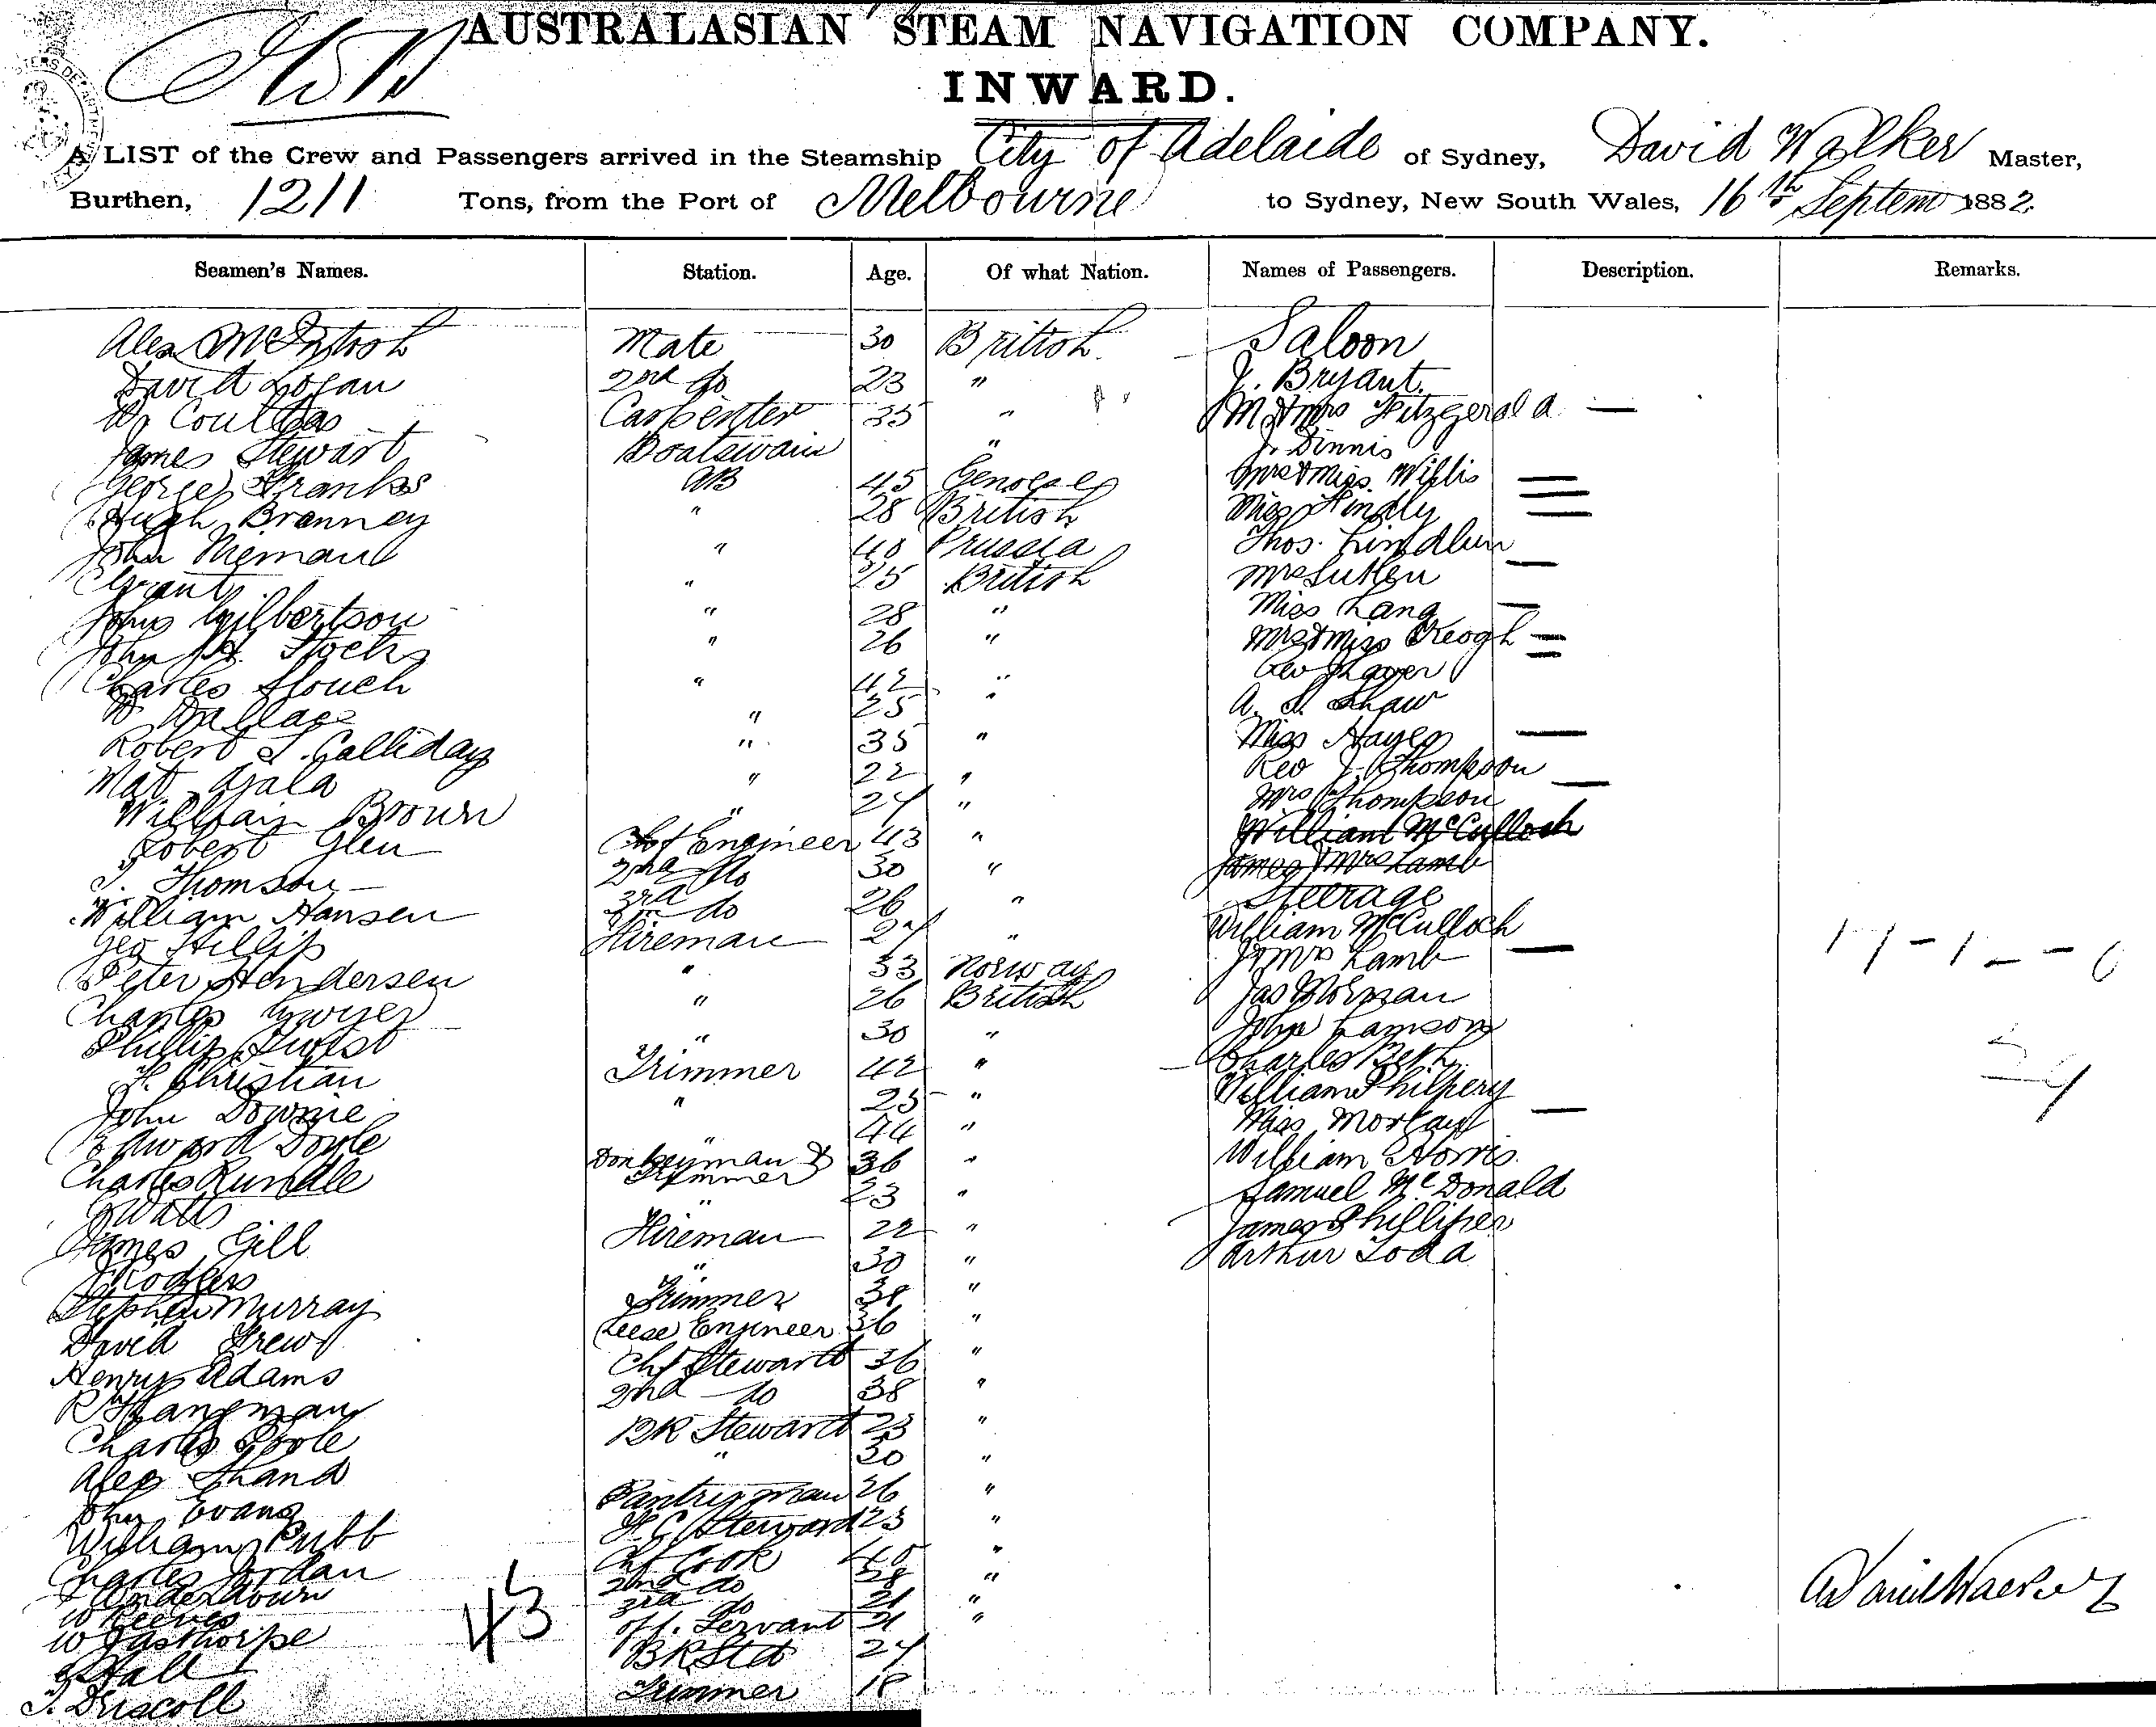 AUSTRALASIAN STEAM NAVIGATION COMPANY.
INWARD.
A LIST of the Crew and Passengers arrived in the Steamship City of Adelaide of Sydney, David Walker Master,
Burthen, 1211 Tons, from the Port of Melbourne to Sydney, New South Wales, 16th Septem 1882.
Seamen's Names. Station. Age. Of what Nation. Names of Passengers. Description. Remarks.
Alex McIntosh Mate 30 British Saloon
David Logan 2nd do 23 " J. Bryant.
W Coulttas Carpenter 35 " Mr & Mrs Fitzgerald —
James Stewart Boatswain " J. Dinnis
George Franks AB 45 Genoese Mrs & Miss Willis
Hugh Branney " 28 British Miss Hindly
John Nieman " 40 Prussia Thos.
Grant " 25 British Mrs
John Gilbertson " 28 " Miss Lang —
John H. Stocks " 26 " Mrs & Miss Keogh
Charles Slouch " 42 " Rev
W Wallace " 25 " A. S. Shaw
Robert S. Galliday " 35 " Miss Hayes —
Mat Gala " 22 " Rev J. Thompson
William Brown " 24 " Mrs Thompson —
Robert Glen Chf Engineer 43 " William McCulloch
T. Thomson 2nd do 30 " James & Mrs Lamb
William Hansen 3rd do 26 " Steerage
Geo Hillip Fireman 27 " William McCulloch
Peter Hendersen " 33 Norway J & Mrs Lamb —
Charles Gwyer " 26 British Jas Morgan
Phillip Twist " 30 " John Lamson
H. Christian Trimmer 42 " Charles Beth
John Downie " 25 " William Philpery
Edward Doyle " 44 " Miss Morlay —
Charles Rundle Donkeyman & Trimmer 36 " William Norris
Watts " 23 " Samuel McDonald
James Gill Fireman 22 " James Phillipes
J Rodgers " 30 " Arthur Todd
Stephen Murray Trimmer 38 "
David Frew Engineer 36 "
Henry Adams Chf Steward 36 "
R Hangman 2nd do 38 "
Charles Poole BK Steward 23 "
Alex Shand " 30 "
John Evans Pantryman 26 "
William Pubb F.C. Steward 23 "
Charles Jordan Chf Cook 40 "
2nd do 28 "
W Reeves 3rd do 21 "
W Gasthorpe Off. Servant 21 "
Hall BK Std 24
T. Driscoll Trimmer 18
43
David Walker